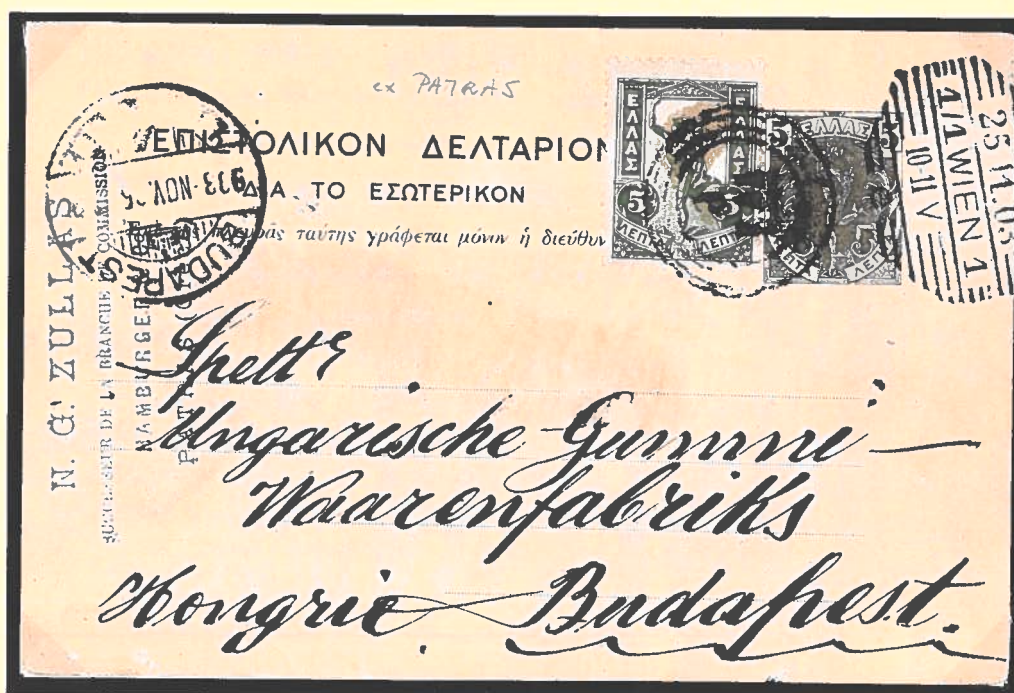 ex PATRAS
ἘΠΙΣΤΟΛΙΚΟΝ ΔΕΛΤΑΡΙΟΝ
ΔΙΑ ΤΟ ΕΣΩΤΕΡΙΚΟΝ
ταύτης γράφεται μόνον ἡ διεύθυν
ΕΛΛΑΣ
ΕΛΛΑΣ
5 5
ΛΕΠΤΑ ΛΕΠΤΑ
5 ΕΛΛΑΣ 5
5 5
ΛΕΠΤΑ ΛΕΠΤΑ
1/1 WIEN 1
25.11.03
10-11 V
BUDAPEST
903 NOV. 26
N. G. ZULLAS
SUCCESSEUR DE LA BRANCHE DE COMMISSION
HAMBURGER
PATRAS
Spettᵉ
Ungarische Gummi-
Waarenfabriks
Hongrie Budapest.